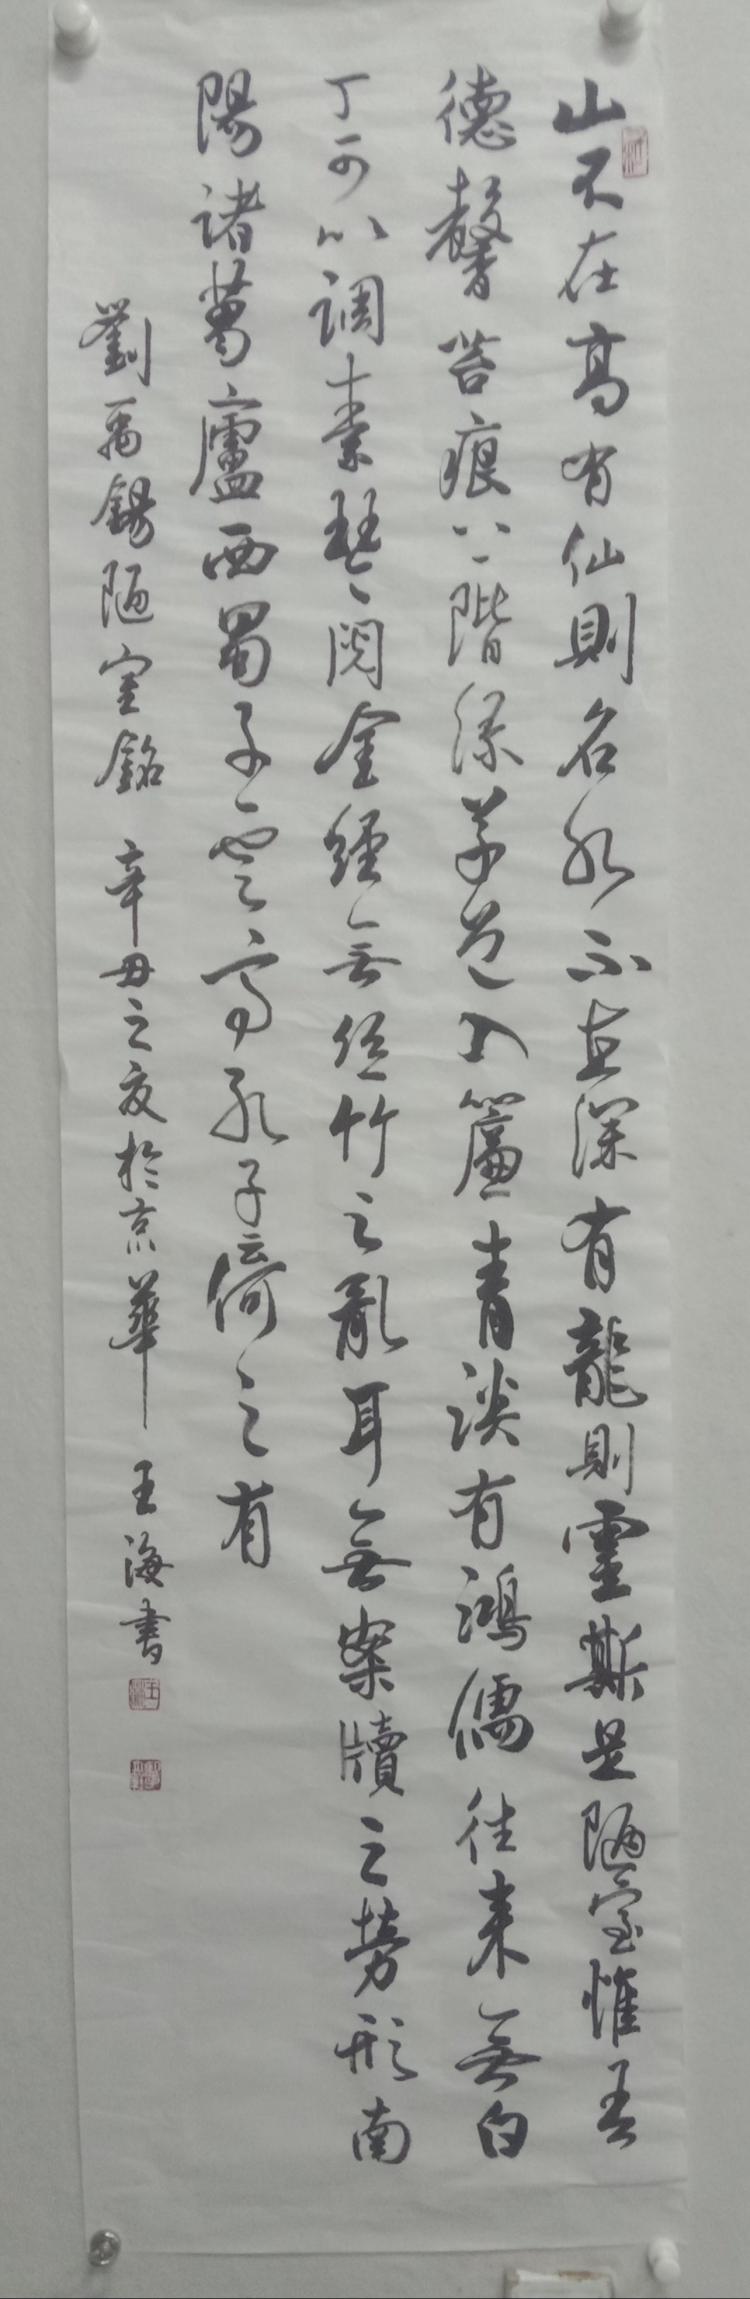 山不在高有仙則名水不在深有龍則靈斯是陋室惟吾
德馨苔痕上階綠草色入簾青談有鴻儒往來無白
丁可以調素琴閱金經無絲竹之亂耳無案牘之勞形南
陽諸葛廬西蜀子雲亭孔子云何之有
劉禹錫陋室銘 辛丑之夏於京華 王海書